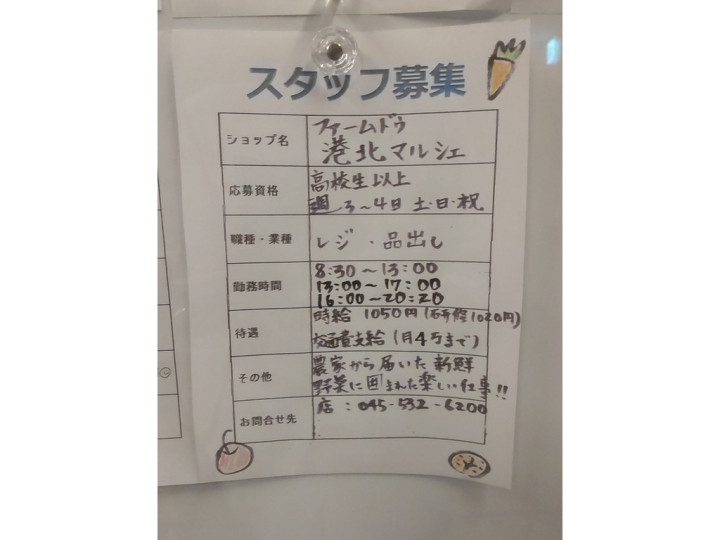 スタッフ募集
ショップ名
ファームドゥ
港北マルシェ
応募資格
高校生以上
週3~4日 土・日・祝
職種・業種
レジ・品出し
勤務時間
8:30~13:00
13:00~17:00
16:00~20:20
待遇
時給 1050円(研修1020円)
交通費支給(月4万まで)
その他
農家から届いた新鮮
野菜に囲まれた楽しい仕事!!
お問合せ先
店:045-532-6200